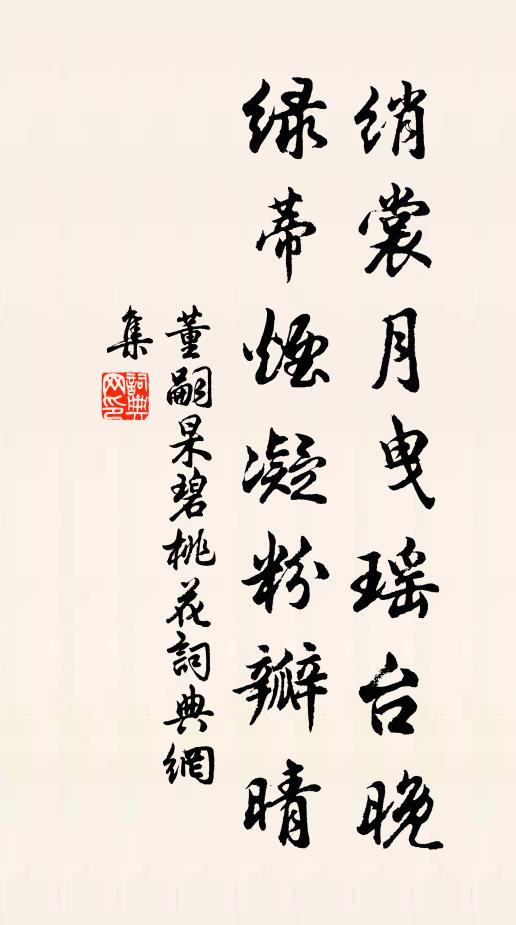 绡裳月曳瑶台晚
绿蒂烟凝粉瓣晴
董嗣杲碧桃花詞典網
集
詞典网印